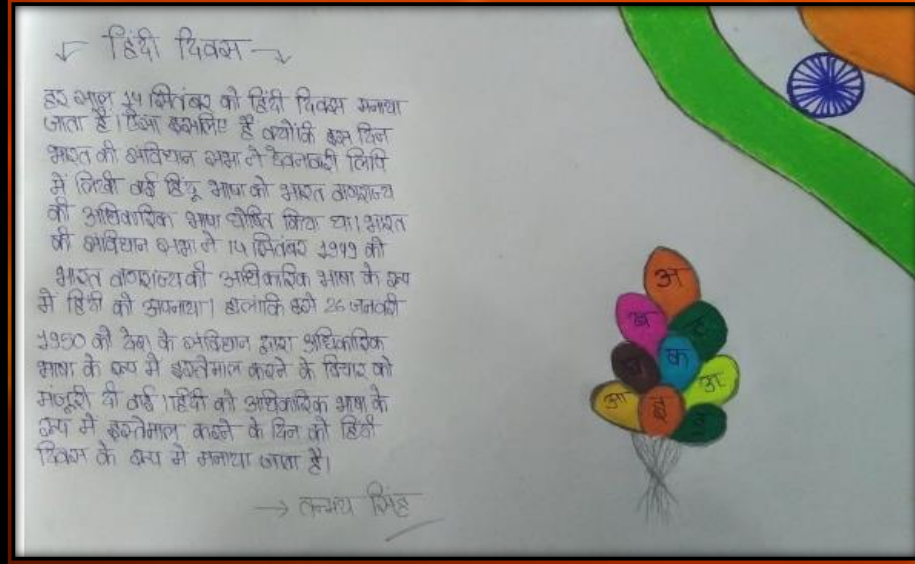 हिंदी दिवस
हर साल 14 सितंबर को हिंदी दिवस मनाया
जाता है। ऐसा इसलिए है क्योंकि इस दिन
भारत की संविधान सभा ने देवनागरी लिपि
में लिखी गई हिंदू भाषा को भारत गणराज्य
की आधिकारिक भाषा घोषित किया था। भारत
की संविधान सभा ने 14 सितंबर 1949 को
भारत गणराज्य की आधिकारिक भाषा के रूप
में हिंदी को अपनाया। हालांकि इसे 26 जनवरी
1950 को देश के संविधान द्वारा आधिकारिक
भाषा के रूप में इस्तेमाल करने के विचार को
मंजूरी दी गई। हिंदी को आधिकारिक भाषा के
रूप में इस्तेमाल करने के दिन को हिंदी
दिवस के रूप में मनाया जाता है।
→ तन्मय सिंह
अ
ख
क
आ